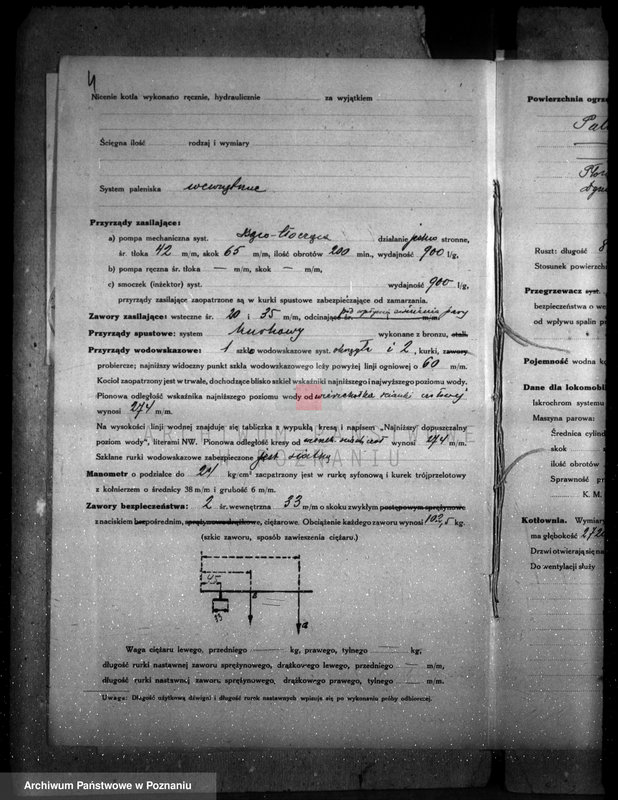 4
Nicenie kotła wykonano ręcznie, hydraulicznie za wyjątkiem
Ścięgna ilość rodzaj i wymiary
System paleniska wewnętrzne
Przyrządy zasilające:
a) pompa mechaniczna syst. działanie jedno stronne,
śr. tłoka 42 m/m, skok 65 m/m, ilość obrotów 200 min., wydajność 900 l/g,
b) pompa ręczna śr. tłoka — m/m, skok — m/m,
c) smoczek (inżektor) syst. wydajność 900 l/g,
przyrządy zasilające zaopatrzone są w kurki spustowe zabezpieczające od zamarzania.
Zawory zasilające: wsteczne śr. 20 i 35 m/m, odcinające śr. pary m/m
Przyrządy spustowe: system kurkowy wykonane z bronzu, stali.
Przyrządy wodowskazowe: 1 szkło wodowskazowe syst. okrągłe i 2, kurki, zawory
probiercze; najniższy widoczny punkt szkła wodowskazowego leży powyżej linji ogniowej o 60 m/m.
Kocioł zaopatrzony jest w trwałe, dochodzące blisko szkieł wskaźniki najniższego i najwyższego poziomu wody.
Pionowa odległość wskaźnika najniższego poziomu wody od wierzchołka ścianki
wynosi 274 m/m.
Na wysokości linji wodnej znajduje się tabliczka z wypukłą kresą i napisem „Najniższy dopuszczalny
poziom wody", literami NW. Pionowa odległość kresy od wynosi 274 m/m.
Szklane rurki wodowskazowe zabezpieczone jest siatką
Manometr o podziałce do 21 kg/cm² zaopatrzony jest w rurkę syfonową i kurek trójprzelotowy
z kołnierzem o średnicy 38 m/m i grubość 6 m/m.
Zawory bezpieczeństwa: 2 śr. wewnętrzna 33 m/m o skoku zwykłym postępowym sprężynowe
z naciskiem bezpośrednim, sprężynowe drążkowe, ciężarowe. Obciążenie każdego zaworu wynosi 102,5 kg.
(szkic zaworu, sposób zawieszenia ciężaru.)
45
B
a
33
Waga ciężaru lewego, przedniego — kg, prawego, tylnego — kg,
długość rurki nastawnej zaworu sprężynowego, drążkowego lewego, przedniego — m/m,
długość rurki nastawnej zaworu sprężynowego, drążkowego prawego, tylnego — m/m.
Uwaga: Długość użytkową dźwigni i długość rurek nastawnych wpisuje się po wykonaniu próby odbiorczej.
Powierzchnia ogrze
Ruszt: długość 8
Stosunek powierzch
Przegrzewacz syst.
bezpieczeństwa o we
od wpływu spalin p
Pojemność wodna ko
Dane dla lokomobil
Iskrochron systemu
Maszyna parowa:
Średnica cylind
skok
ilość obrotów
Sprawność pr
K. M.
Kotłownia. Wymiary
ma głębokość 272
Drzwi otwierają się na
Do wentylacji służy
ARCHIWUM PAŃSTWOWE
W POZNANIU
Archiwum Państwowe w Poznaniu